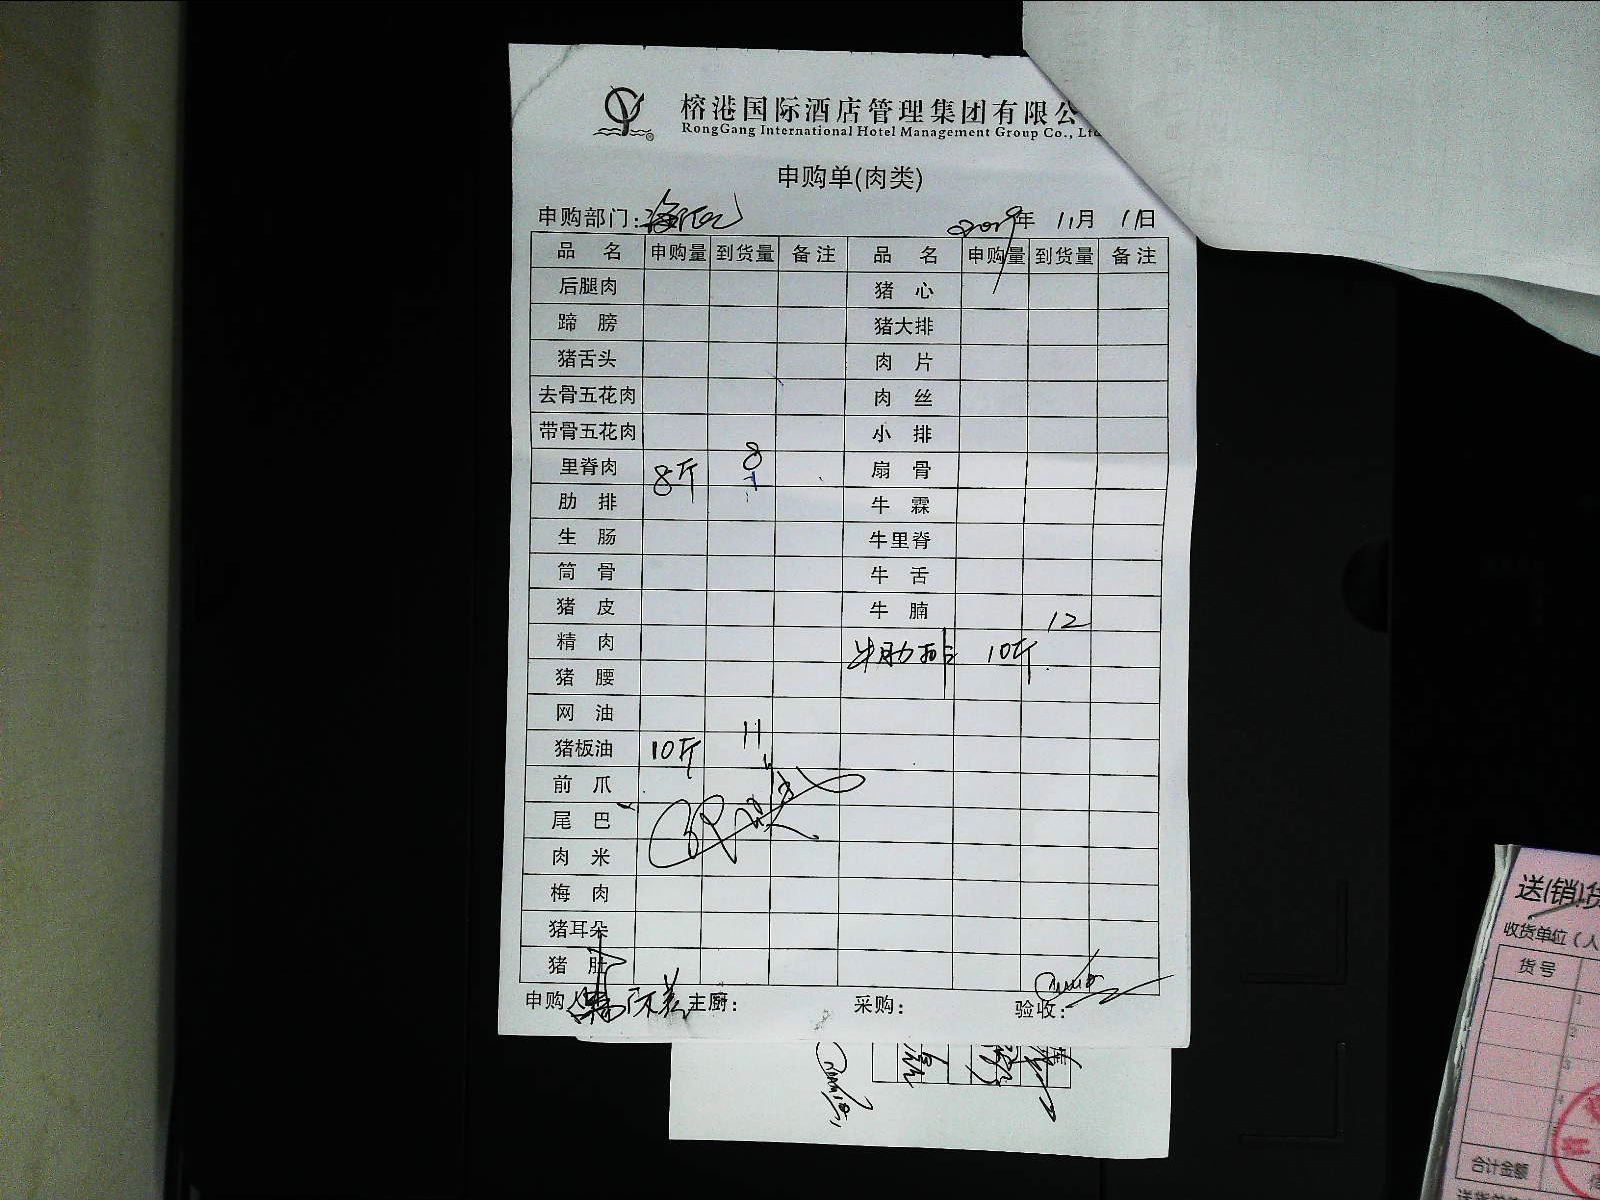 榕港国际酒店管理集团有限公
RongGang International Hotel Management Group Co., Ltd
申购单(肉类)
申购部门: 2019年 11月 11日
品 名 申购量 到货量 备注 品 名 申购量 到货量 备注
后腿肉 猪 心
蹄 膀 猪大排
猪舌头 肉 片
去骨五花肉 肉 丝
带骨五花肉 小 排
里脊肉 8斤 8 扇 骨
肋 排 牛 霖
生 肠 牛里脊
筒 骨 牛 舌
猪 皮 牛 腩
精 肉 牛肋排 10斤 12
猪 腰
网 油
猪板油 10斤 11
前 爪
尾 巴
肉 米
梅 肉
猪耳朵
猪 肚
申购人 主厨: 采购: 验收:
送(销)货
收货单位(人
货号
1
2
3
4
合计金额